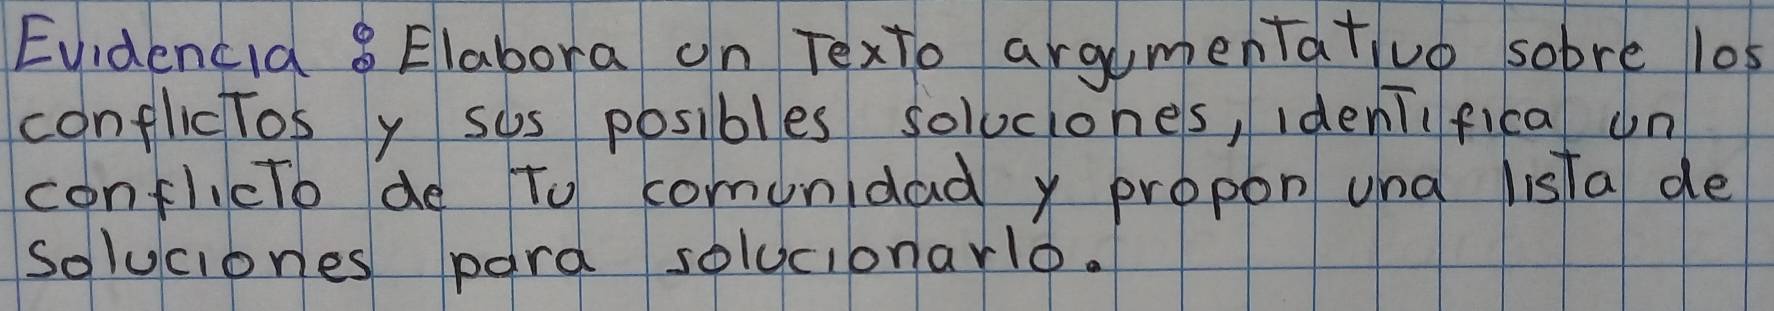 Evidencia : Elabora un Texto argumentativo sobre los
conflictos y sus posibles soluciones, identifica un
conflicto de Tu comunidad y propon una lista de
soluciones para solucionarlo.